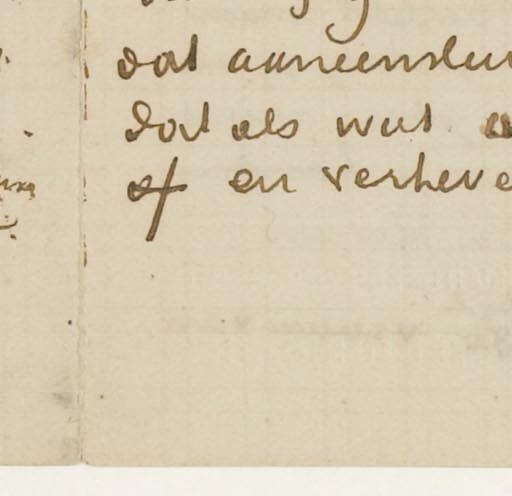 dat aaneenslui
dat als wat
of en verheve